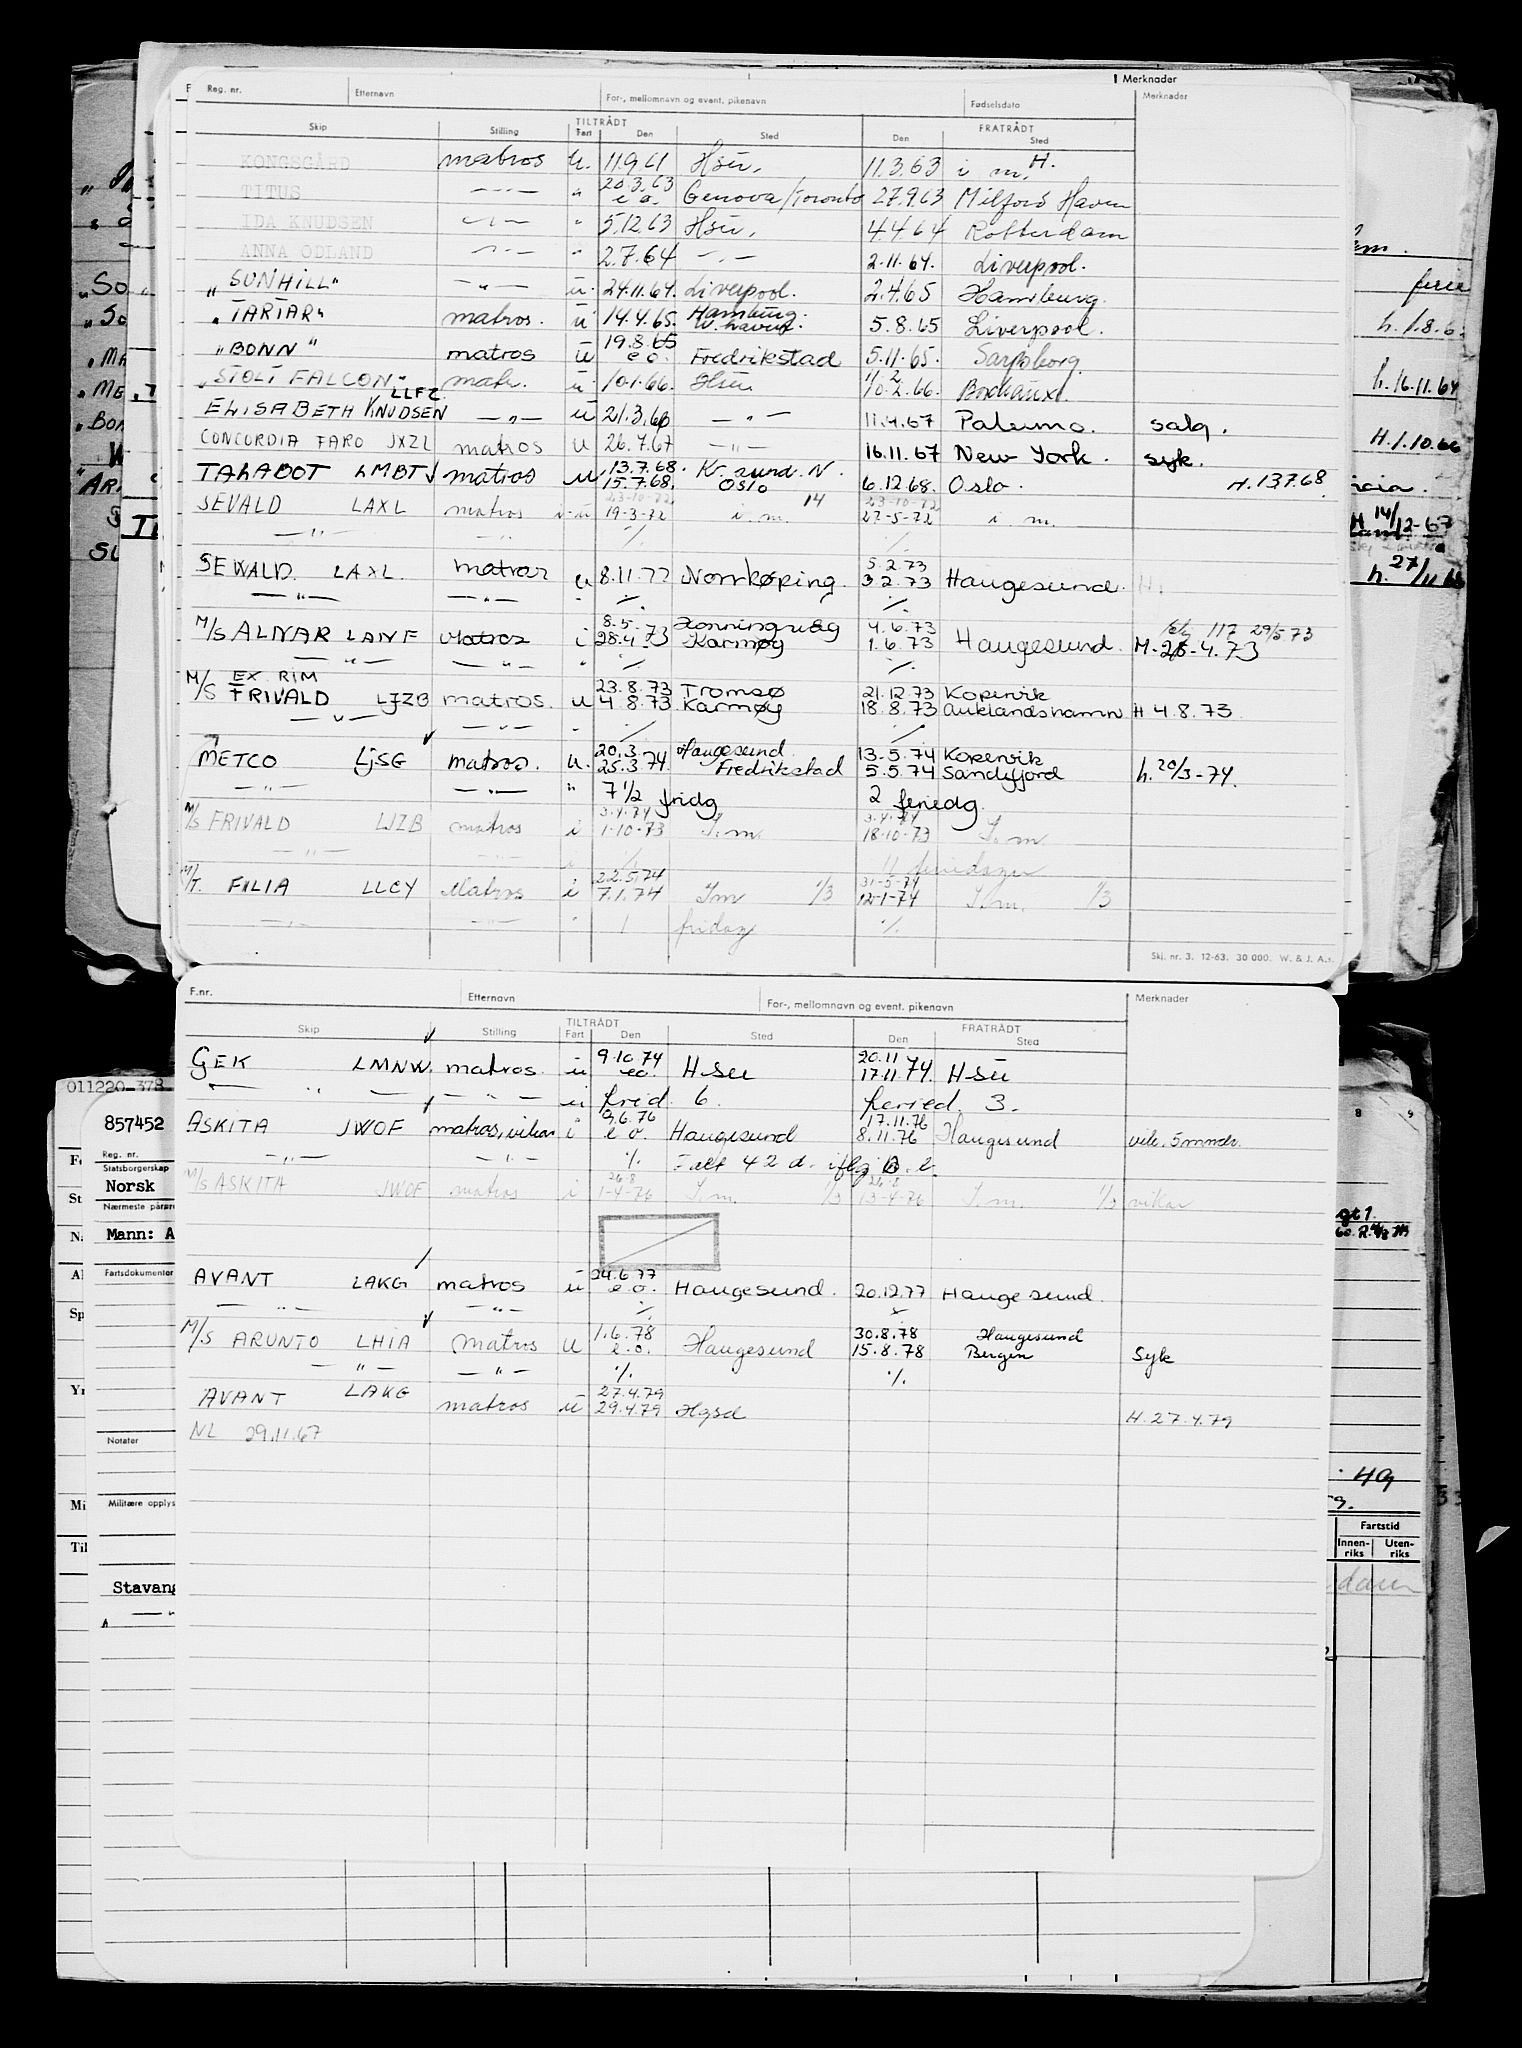 Merknader
Reg. nr. Etternavn For-, mellomnavn og event. pikenavn Fødselsdato Merknader
TILTRÅDT FRATRÅDT
Skip Stilling Fart Den Sted Den Sted
KONGSGÅRD matros u. 11.9.61 Hsu. 11.3.63 i m. H.
20.3.63
TITUS —"— " e.o. Genova/Toronto 27.9.63 Milford Haven
IDA KNUDSEN —"— " 5.12.63 Hsu. 4.4.64 Rotterdam
ANNA ODLAND —"— " 2.7.64 —"— 2.11.64. Liverpool.
"SUNHILL" —"— u. 24.11.64. Liverpool. 2.4.65 Hamburg.
"TARTAR" matros. u 14.4.65. Hamburg. W.haven. 5.8.65 Liverpool.
19.8.65
"BONN" matros u e.o. Fredrikstad 5.11.65. Sarpsborg.
"STOLT FALCON" matr. u. 10.1.66. Hsu 10.2.66. Bordeaux.
LLFZ
ELISABETH KNUDSEN —"— u 21.3.66 —"— 11.4.67 Palermo. salg.
CONCORDIA FARO JXZL matros u 26.7.67 —"— 16.11.67 New York. syk.
13.7.68. Kr.sund.N.
TALABOT LMBT matros u 15.7.68. Oslo 6.12.68. Oslo. H.13.7.68.
23-10-72 14 23-10-72
SEVALD LAXL matros i-u 19-3-72 i.m. 27-5-72 i m.
—"— —"— ./. ./.
5.2.73
SEWALD. LAXL. matros u 8.11.72 Norrkøping. 3.2.73 Haugesund. H.
—"— —"— ./. ./.
8.5.73 Honningsvåg 4.6.73 117 29/5 73
M/S ALNAR LANF Matros i 28.4.73 Karmøy 1.6.73 Haugesund. M-28-4.73
—"— —"— " ./. ./.
EX. RIM 23.8.73 Tromsø 21.12.73 Kopervik
M/S FRIVALD LJZB matros. u 4.8.73 Karmøy 18.8.73 Auklandshamn H 4.8.73
—"— —"— ./. ./.
20.3. Haugesund 13.5.74 Kopervik
METCO LJSG matros. u. 25.3.74. Fredrikstad 5.5.74 Sandefjord h. 20/3-74.
—"— —"— " 7 1/2 fridg 2 feriedg.
3.4.74 3.4.74
M/S FRIVALD LJZB matros i 1-10-73 I.m. 18-10-73 I.m
—"— —"— i ./. 11 feriedager
22.5.74 31-5-74
M/T. FILIA LLCY Matros i 7.1.74 I.m 1/3 12-1-74 I.m. 1/3
—"— —"— " 1 fridag ./.
Skj. nr. 3. 12-63. 30 000. W. & J. A.s.
"SO
"SO
"MA
"ME
"BON
AR.
ferie
h. 1.8.6
h. 16.11.64
H.1.10.66
H 14/12-67
h. 27/11 68
F.nr. Etternavn For-, mellomnavn og event. pikenavn Merknader
TILTRÅDT FRATRÅDT
Skip Stilling Fart Den Sted Den Sted
9.10.74 20.11
GEK LMNW. matros. u eo. H-su 17.11.74. H-su
—"— —"— u frid. 6. feried. 3.
9.6.76 17.11.76
ASKITA JWOF matros, vikar i e.o. Haugesund 8.11.76 Haugesund vik. 5 mndr.
—"— —"— ./. Falt 42 d. iflg
26-8 26-8
M/S ASKITA JWOF matros i 1-4-76 I.m. 1/3 13-4-76 I.m. 1/3 vikar
24.6.77
AVANT LAKG matros u e.o. Haugesund. 20.12.77 Haugesund.
—"— —"— ./.
1.6.78 30.8.78 Haugesund
M/S ARUNTO LHIA matros u e.o. Haugesund 15.8.78 Bergen Syk
—"— —"— ./. ./.
27.4.79
AVANT LAKG matros u 29.4.79 Hgsd H.27.4.79
NL 29.11.67
011220 378
857452
Reg. nr.
Statsborgerskap
Norsk
Nærmeste pårøre
Mann: A
Fartsdokumenter
Notater
Militære opplys
Stavang
Fe
St
N.
Al
Sp
Yr
Mi
Til
8 9
49
Fartstid
Innen-riks Uten-riks
dam